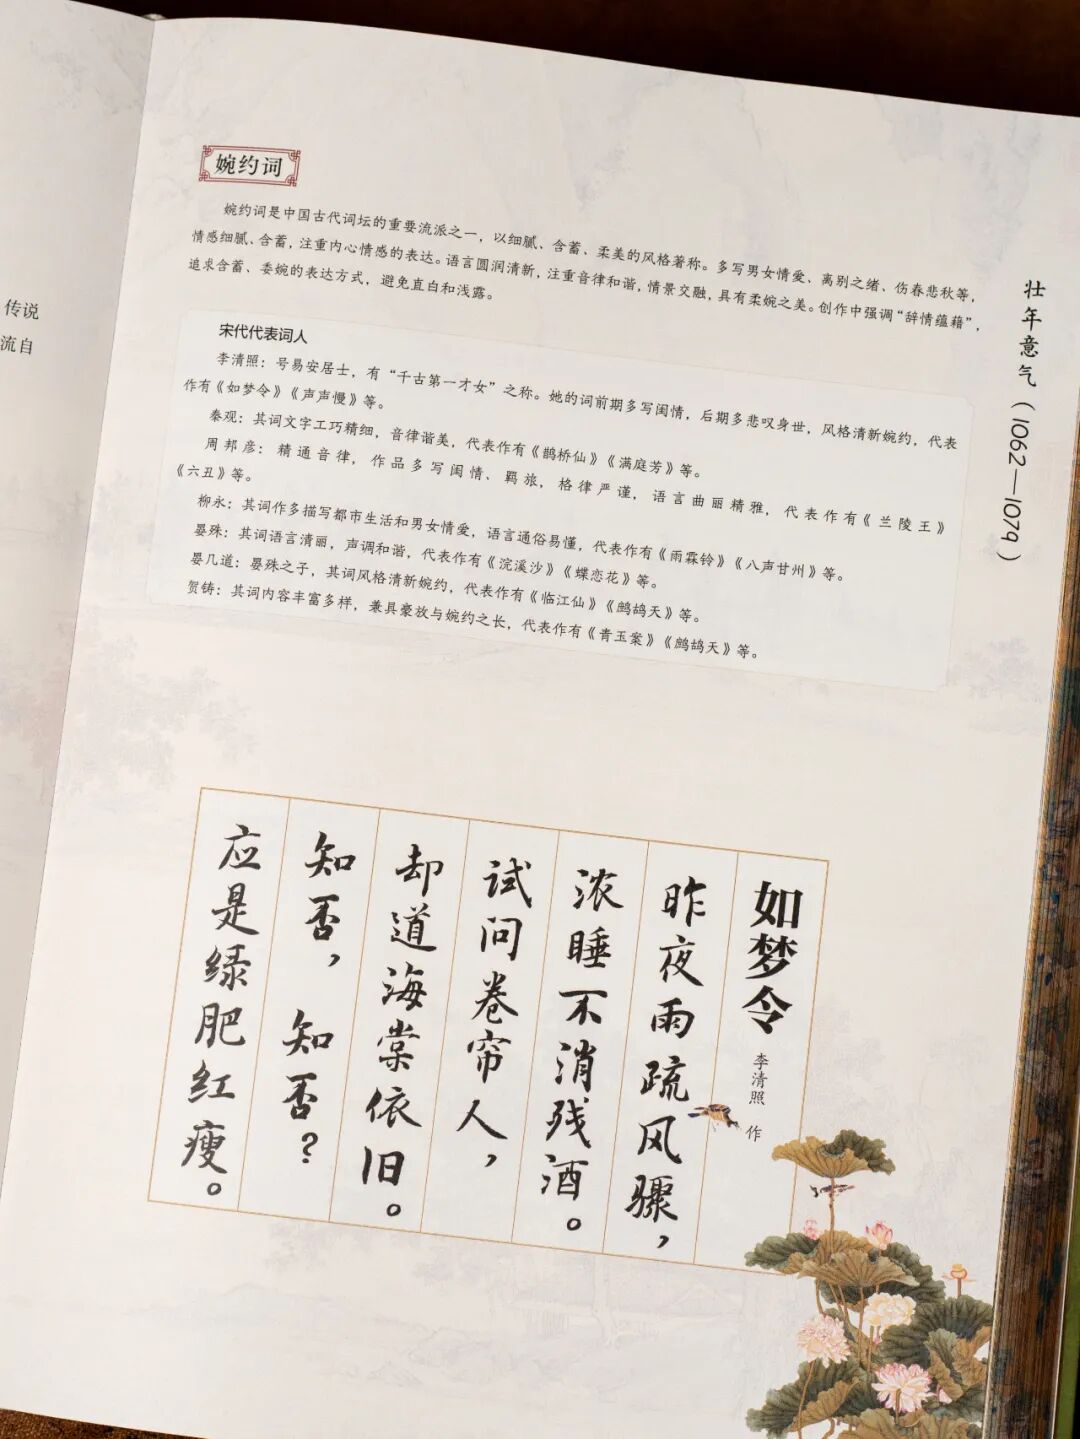 传说
流自
婉约词
婉约词是中国古代词坛的重要流派之一，以细腻、含蓄、柔美的风格著称。多写男女情爱、离别之绪、伤春悲秋等，
情感细腻、含蓄，注重内心情感的表达。语言圆润清新，注重音律和谐，情景交融，具有柔婉之美。创作中强调“辞情蕴藉”，
追求含蓄、委婉的表达方式，避免直白和浅露。
宋代代表词人
李清照：号易安居士，有“千古第一才女”之称。她的词前期多写闺情，后期多悲叹身世，风格清新婉约，代表
作有《如梦令》《声声慢》等。
秦观：其词文字工巧精细，音律谐美，代表作有《鹊桥仙》《满庭芳》等。
周邦彦：精通音律，作品多写闺情、羁旅，格律严谨，语言曲丽精雅，代表作有《兰陵王》
《六丑》等。
柳永：其词作多描写都市生活和男女情爱，语言通俗易懂，代表作有《雨霖铃》《八声甘州》等。
晏殊：其词语言清丽，声调和谐，代表作有《浣溪沙》《蝶恋花》等。
晏几道：晏殊之子，其词风格清新婉约，代表作有《临江仙》《鹧鸪天》等。
贺铸：其词内容丰富多样，兼具豪放与婉约之长，代表作有《青玉案》《鹧鸪天》等。
壮年意气（1062—1079）
如梦令 李清照 作
昨夜雨疏风骤，
浓睡不消残酒。
试问卷帘人，
却道海棠依旧。
知否，知否？
应是绿肥红瘦。